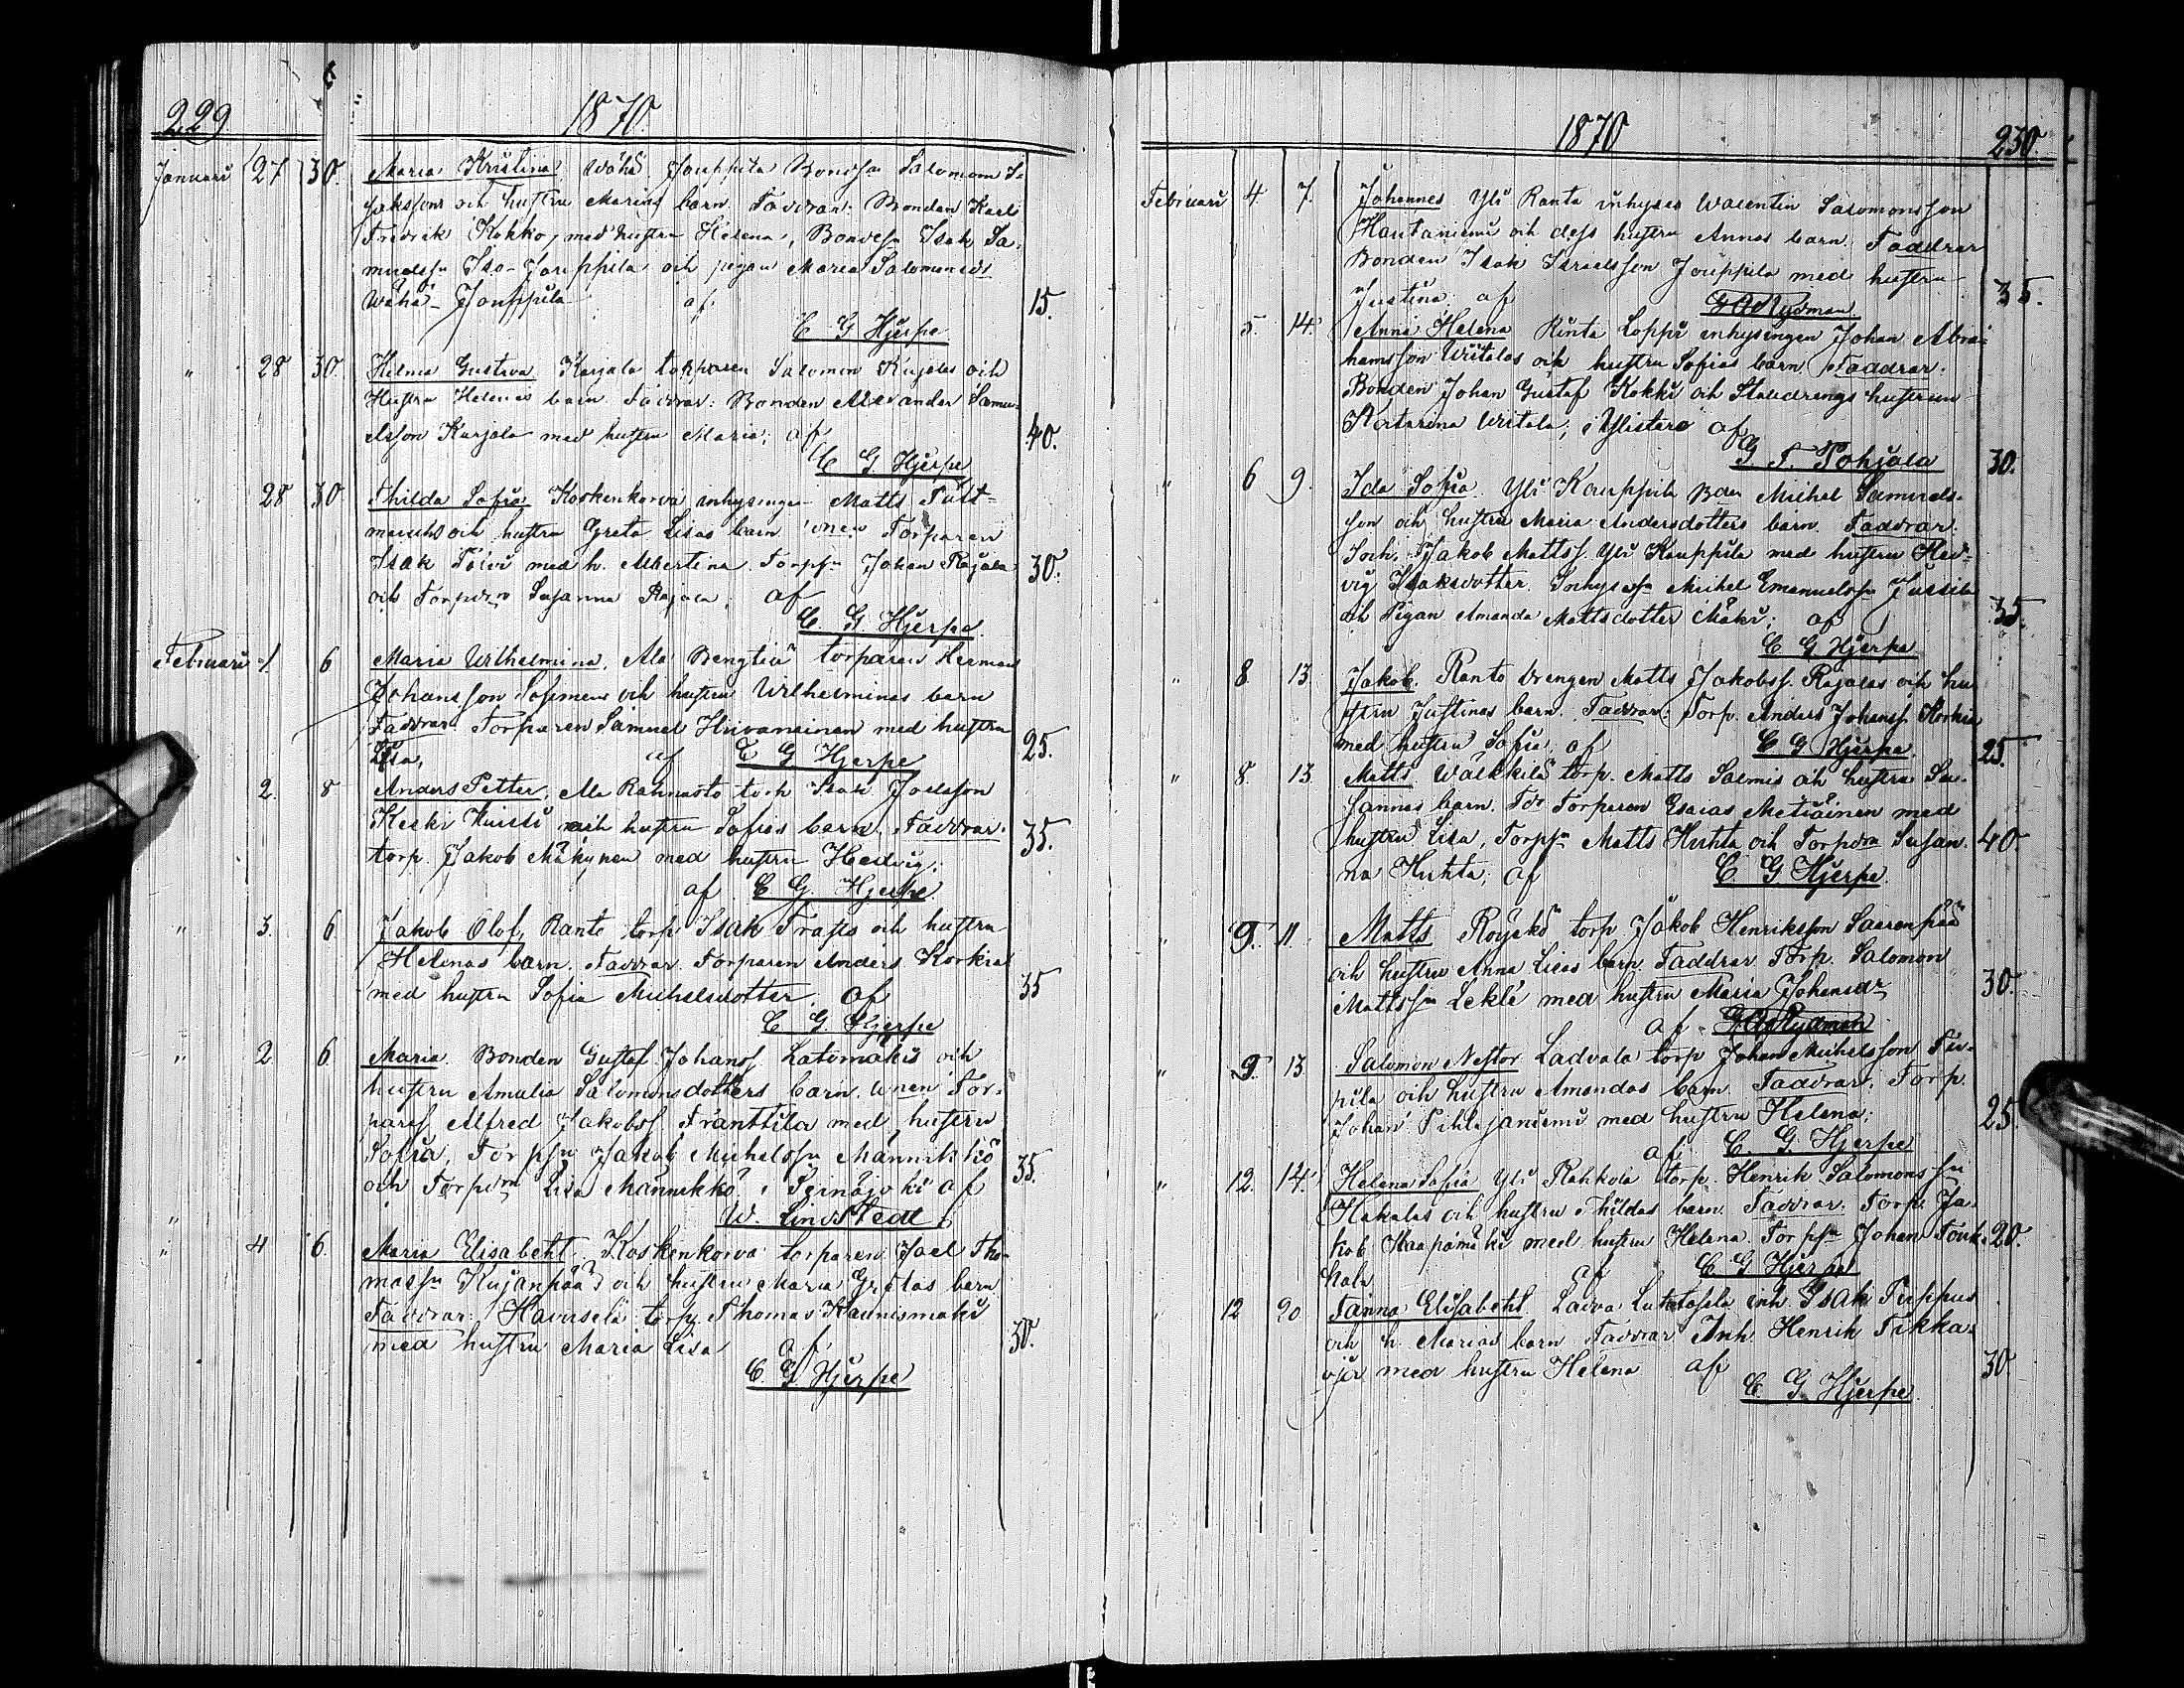 229
1870
Januari 27 30. Maria Kristina Wähä Jouppila Bondsn Salomon I-
sakssons och hustru Marias barn. Faddrar: Bonden Karl
Fredrik Kokko, med hustru Helena, Bondesn Isak Sa-
muelssn Iso-Jouppila och pigan Maria Salomonsdr
Wähä-Jouppila af 15.
C G Hjerpe
" 28 30. Helma Gustava Karjala torparen Salomon Kujalas och
Hustru Helenas barn Faddrar: Bonden Alexander Samu-
elsson Karjala med hustru Maria; af 40.
C G Hjerpe
" 28 30 Thilda Sofia Koskenkorva inhysingen Matts
och hustru Greta Lisas barn Torparen
Isak med h. Albertina. Torpsn Johan Rajala 30.
och Torpdrn Susanna Rajala, af
C G Hjerpe
Februari 1. 6 Maria Wilhelmina. Ala Bengtiä torparen Herman
Johansson och hustru Wilhelminas barn
Faddrar Torparen Samuel Hirvaneinen med hustru
Lisa, af C G Hjerpe 25.
2. 8 Anders Petter, Ala Rahnasto torp Isak Joelsson
Keski och hustru Sofias barn. Faddrar.
torp. Jakob Mäkynen med hustru Hedvig; 35.
af C G. Hjerpe
" 3. 6 Jakob Olof, Ranto torp Isak Trasts och hustru
Helenas barn. Faddrar. Torparen Anders Korkia
med hustru Sofia Michelsdotter. af 35
C G. Hjerpe
" 2 6. Maria. Bonden Gustaf Johanss. Latomäkis och
hustru Amalia Salomonsdotters barn. Tor-
pares Alfred Jakobss. Franttila med hustru
Sofia, Torpsn Jakob Michelssn Männikkö 35.
och Torpdrn Lisa Männikkö i Seinäjoki af
W. Lindstedt
" 4 6. Maria Elisabeht. Koskenkorva torparen Joel Tho-
massn Kujanpää och hustru Maria Gretas barn
Faddrar: Havusela torp. Thomas Kaunismäki
med hustru Maria Lisa af 30.
C. G. Hjerpe
1870
230
Februari 4. 7. Johannes Yli Ranta inhyses Walentin Salomonsson
Hautaniemi och dess hustru Annas barn. Faddrar
Bonden Isak Israelsson Jouppila med hustru
Justina; af G A Rydman 35.
5. 14. Anna Helena Rinta Loppi inhysingen Johan Abra-
hamsson Writalas och hustru Sofias barn. Faddrar.
Bonden Johan Gustaf Kokki och Stalldrengs hustrun
Katarina Writala; i Ylistaro af
G. T. Pohjala 30.
" 6 9. Ida Sofia Yli Kauppila Bdn Michel Samuels-
son och hustru Maria Andersdotters barn Faddrar.
Soch. Jakob Mattss. Yli Kauppila med hustru Hed-
vig Isaksdotter. Inhysessn Michel Emanuelssn Jussila
och Pigan Amanda Mattsdotter Mäki; af 35.
C G Hjerpe
" 8 13 Jakob. Ranto drengen Matts Jakobss. Rajalas och hu-
stru Justinas barn. Faddrar: Torp. Anders Johanss Korkia
med hustru Sofia, af C G Hjerpe. 25.
" 8. 13. Matts Wälkkilä torp. Matts Salmis och hustru Su-
sannas barn. Fdr Torparen Esaias Metiäinen med
hustru Lisa, Torpsn Matts Huhta och Torpdrn Susan- 40.
na Huhta; af C. G Hjerpe
" 9. 11. Matts Röyskö torp Jakob Henriksson Saarenpää
och hustru Anna Lisas barn. Faddrar Torp. Salomon
Mattssn Lekli med hustru Maria Johansdr 30.
af G A Rydman
" 9. 13. Salomon Nestor Ladvala torp Johan Michelsson
pila och hustru Amandas barn Faddrar; Torp.
Johan Pihlajaniemi med hustru Helena; 25.
af C. G. Hjerpe
" 12. 14. Helena Sofia Yli Rahkola torp. Henrik Salomonssn
Hakalas och hustru Thildas barn Faddrar. Torp. Ja-
kob Haapamäki med hustru Helena. Torpsn Johan Touk- 20.
kola af C. G Hjerpe
" 12 20 Fanna Elisabeht. inh. Isak Peppus
och h. Marias barn Faddrar Inh. Henrik Tikka-
oja med hustru Helena af 30
C. G. Hjerpe